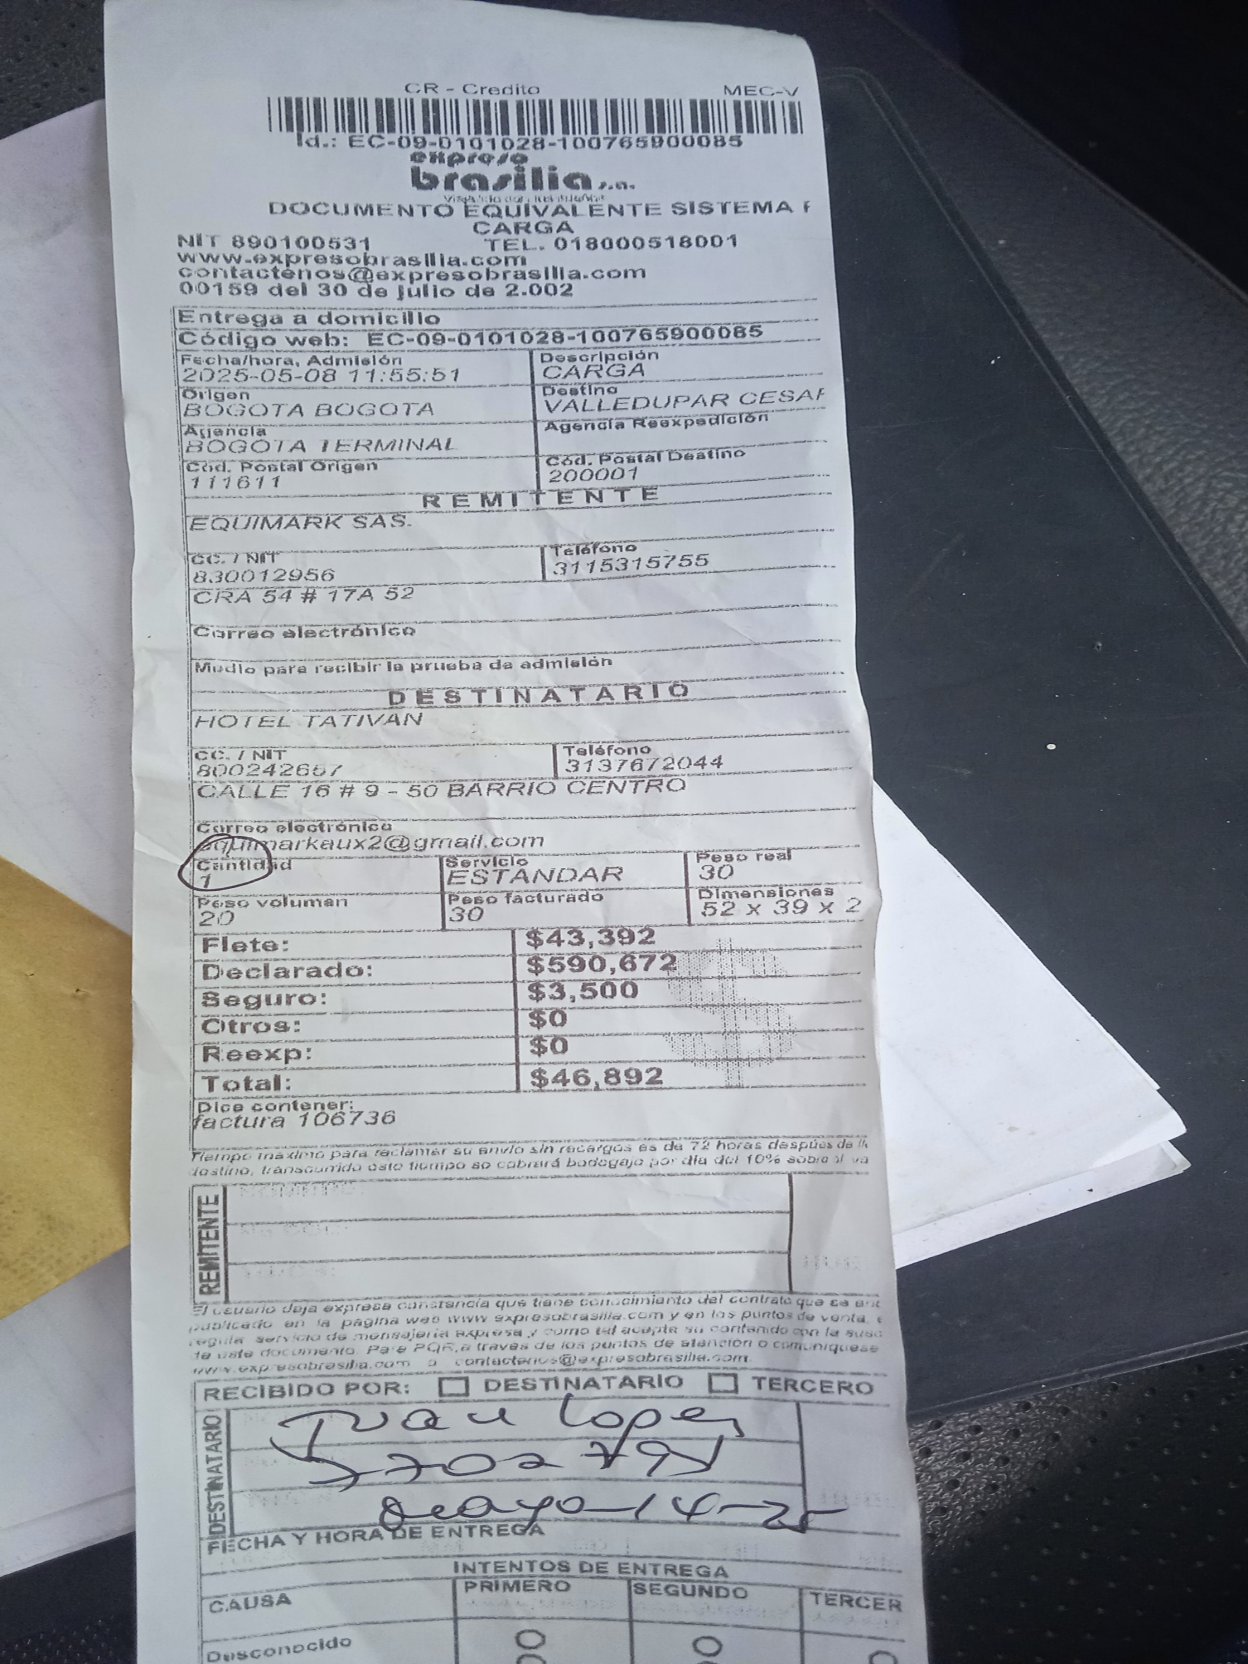 CR - Credito MEC-V
Id.: EC-09-0101028-100765900085
expreso
brasilia s.a.
DOCUMENTO EQUIVALENTE SISTEMA
CARGA
NIT 890100531 TEL. 018000518001
www.expresobrasilia.com
contactenos@expresobrasilia.com
00159 del 30 de julio de 2.002
Entrega a domicilio
Código web: EC-09-0101028-100765900085
Fecha/hora, Admisión Descripción
2025-05-08 11:55:51 CARGA
Origen Destino
BOGOTA BOGOTA VALLEDUPAR CESAR
Agencia Agencia Reexpedición
BOGOTA TERMINAL
Cód. Postal Origen Cód. Postal Destino
111611 200001
REMITENTE
EQUIMARK SAS.
CC. / NIT Teléfono
830012956 3115315755
CRA 54 # 17A 52
Correo electrónico
Medio para recibir la prueba de admisión
DESTINATARIO
HOTEL TATIVAN
CC. / NIT Teléfono
800242657 3137672044
CALLE 16 # 9 - 50 BARRIO CENTRO
Correo electrónico
equimarkaux2@gmail.com
Cantidad Servicio Peso real
1 ESTANDAR 30
Peso volumen Peso facturado Dimensiones
20 30 52 x 39 x 2
Flete: $43,392
Declarado: $590,672
Seguro: $3,500
Otros: $0
Reexp: $0
Total: $46,892
Dice contener:
factura 106736
Tiempo máximo para reclamar su envío sin recargos es de 72 horas después de
destino, transcurrido este tiempo se cobrará bodegaje por día del 10% sobre
REMITENTE
El usuario deja expresa constancia que tiene conocimiento del contrato que se
publicado en la página web www expresobrasilia.com y en los puntos de venta,
regula servicio de mensajería expresa y como tal acepta su contenido con la
de este documento. Para PQR, a través de los puntos de atención o comuníquese
www.expresobrasilia.com o contactenos@expresobrasilia.com
RECIBIDO POR: DESTINATARIO TERCERO
DESTINATARIO
Ivan Lopez
mayo-14-25
FECHA Y HORA DE ENTREGA
INTENTOS DE ENTREGA
CAUSA PRIMERO SEGUNDO TERCER
Desconocido